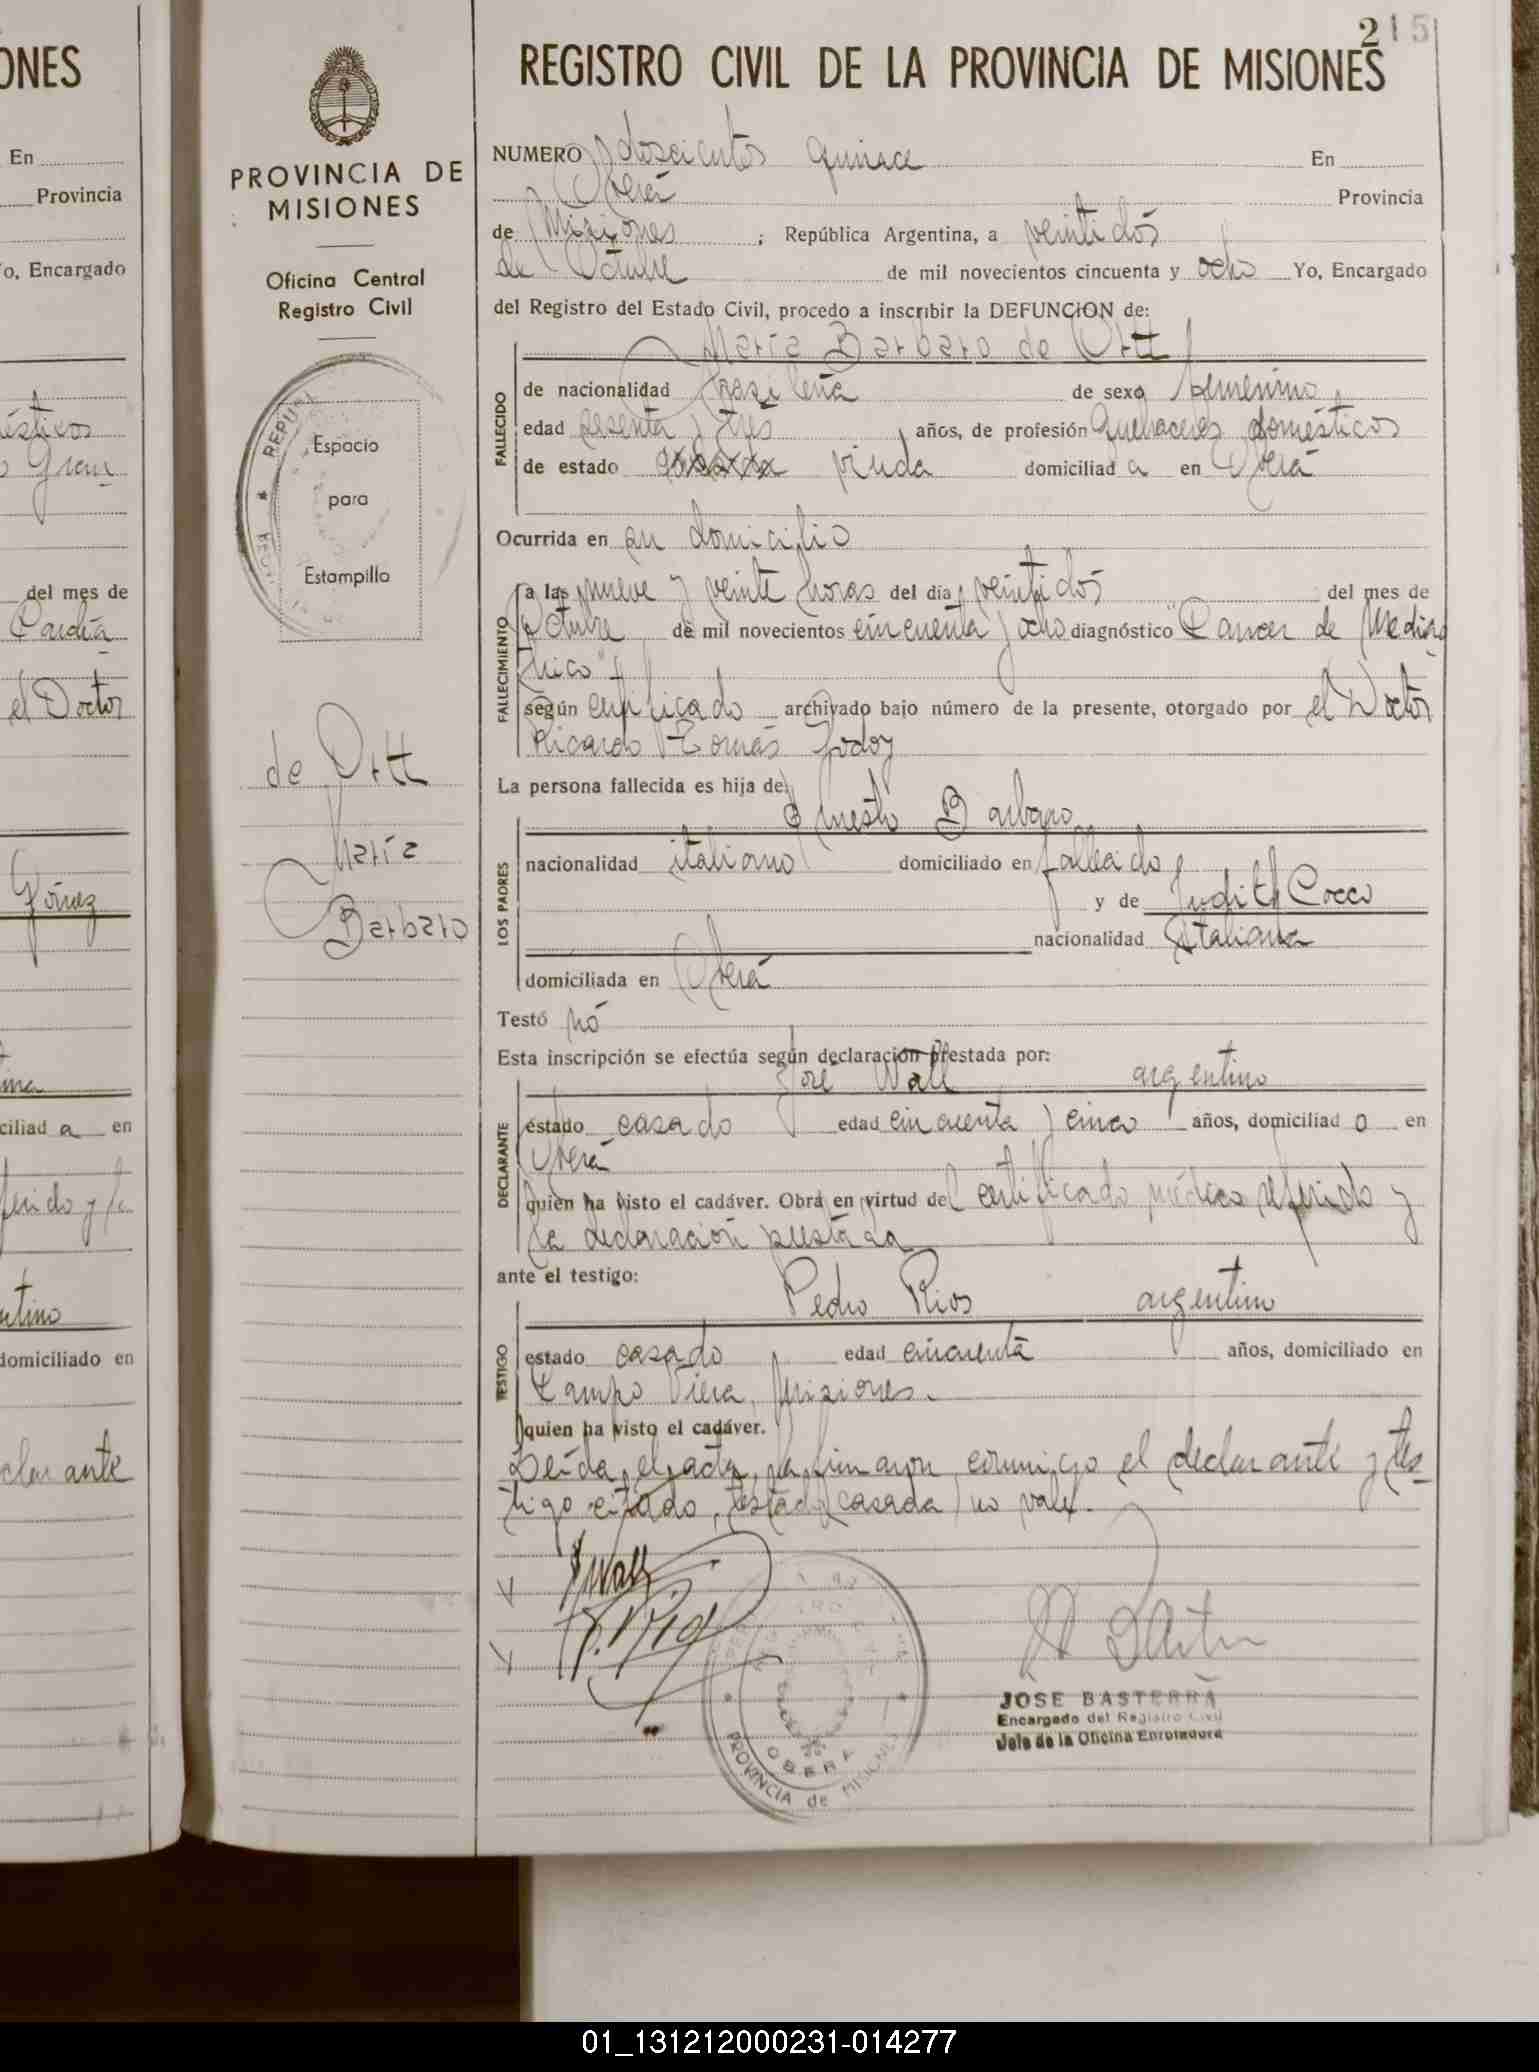 ONES
En
Provincia
o, Encargado
ésticos
del mes de
Cardia
el Doctor
Gómez
ciliad a en
ferido y la
ntino
domiciliado en
clarante
PROVINCIA DE
MISIONES
Oficina Central
Registro Civil
REPUB
Espacio
para
Estampilla
de Ortt
María
Barbaro
215
REGISTRO CIVIL DE LA PROVINCIA DE MISIONES
NUMERO doscientos quince En
Oberá Provincia
de Misiones ; República Argentina, a veintidós
de Octubre de mil novecientos cincuenta y ocho Yo, Encargado
del Registro del Estado Civil, procedo a inscribir la DEFUNCION de:
María Barbaro de Ortt
FALLECIDO
de nacionalidad brasileña de sexo femenino,
edad sesenta y tres años, de profesión Quehaceres domésticos
de estado casada viuda domiciliad a en Oberá
Ocurrida en su domicilio
FALLECIMIENTO
a las nueve y veinte horas del dia veintidós del mes de
Octubre de mil novecientos cincuenta y ocho diagnóstico "Cancer de Medias
thico"
según certificado archivado bajo número de la presente, otorgado por el Doctor
Ricardo Tomás Godoy
La persona fallecida es hija de:
LOS PADRES
Ernesto Barbaro
nacionalidad italiano domiciliado en fallecido
y de Judith Cocco
nacionalidad Italiana
domiciliada en Oberá
Testó nó
Esta inscripción se efectúa según declaración prestada por:
DECLARANTE
José Wall argentino
estado casado edad cincuenta y cinco años, domiciliad o en
Oberá
quien ha visto el cadáver. Obra en virtud del certificado médico referido y
la declaración prestada
ante el testigo:
TESTIGO
Pedro Rios argentino
estado casado edad cincuenta años, domiciliado en
Campo Viera, Misiones.
quien ha visto el cadáver.
Leída el acta, la firmaron conmigo el declarante y tes-
tigo citado, testado (casada) no vale.
JWall
P. Rios
OBERA
PROVINCIA de MISIONES
JOSE BASTERRA
Encargado del Registro Civil
Jefe de la Oficina Enroladora
01_131212000231-014277